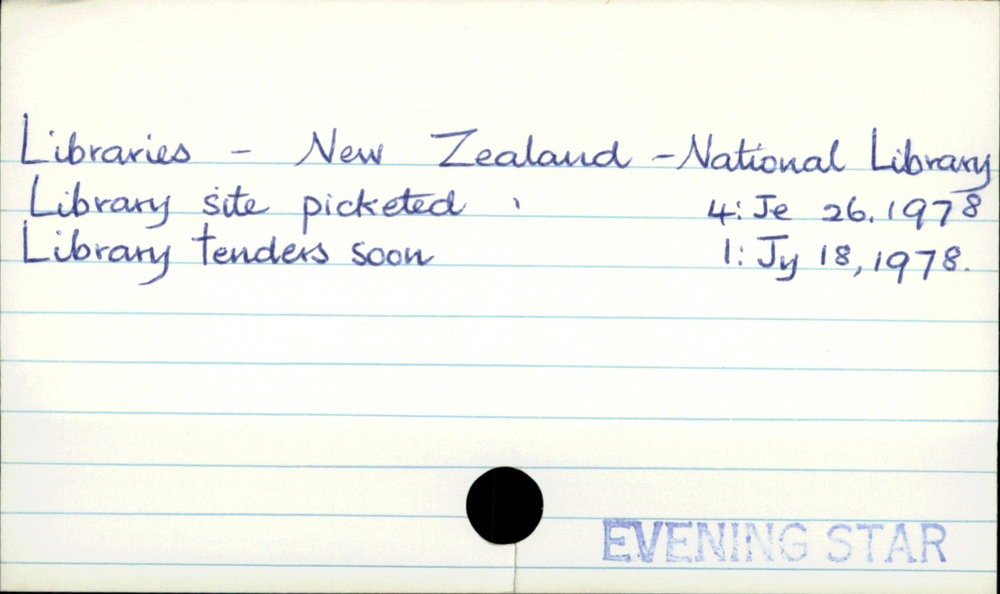 Libraries - New Zealand - National Library
Library site picketed 4: Je 26. 1978
Library tenders soon 1: Jy 18, 1978.
EVENING STAR